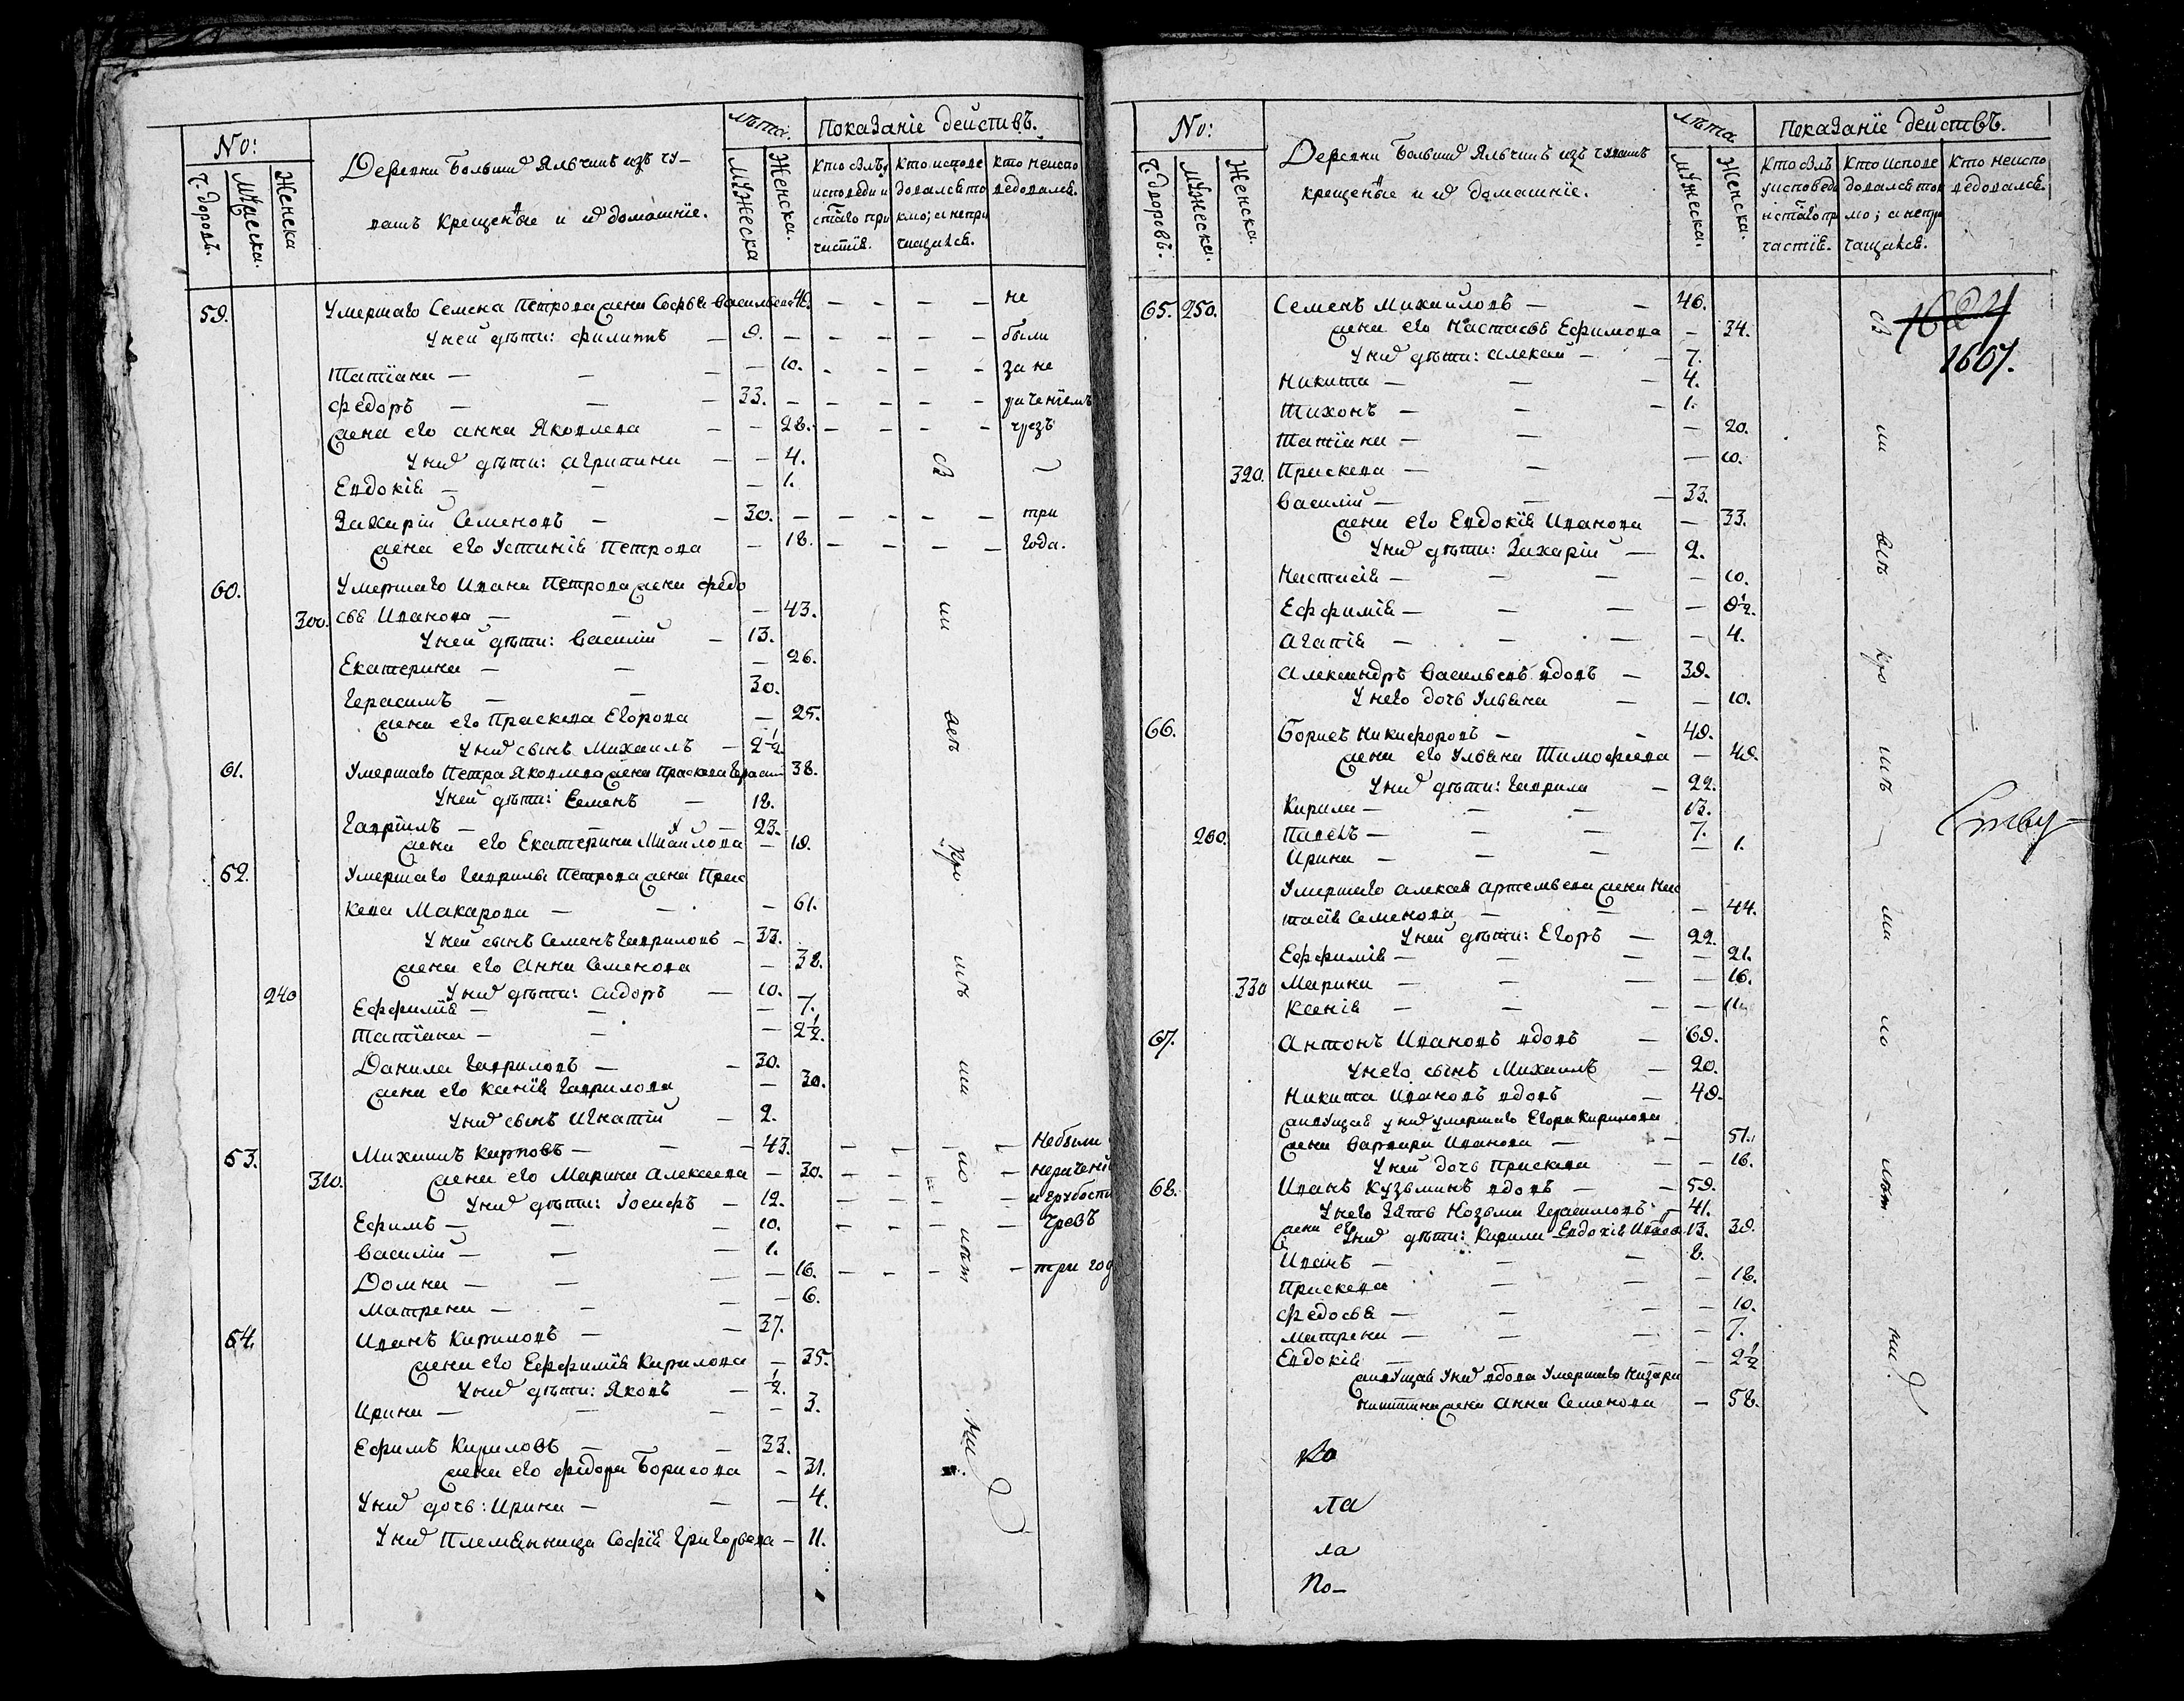 No:
Деревни Большиⷯ Яльчикъ изъ чу-
вашъ крещеные и иⷯ домашніе.
лѣта.
Показаніе действъ.
Ч: дворовъ.
Мужеска.
Женска
Мужеска
Женска.
Кто былъ у исповеди и стаго причастія.
Кто исповедовался токмо; а непричащался.
Кто неисповедовался.
59. Умершаго Семена Петрова жена Софья Васильева 48. не
У ней дѣти: Филиппъ — 9. были
Татіана — 10. за не
Федоръ — 33. рачениемъ
жена его Анна Яковлева — 28. чрезъ
У ниⷯ дѣти: Агрипина — 4.
Евдокія — 1.
Захаріи Семеновъ — 30. три
жена его Устинія Петрова — 18. года.
60. Умершаго Ивана Петрова жена Федо
300. сья Иванова — 43.
У ней дѣти: Василій — 13.
Екатерина — 26.
Герасимъ — 30.
жена его Праскева Егорова — 25.
У ниⷯ сынъ Михаилъ — 2½
61. Умершаго Петра Яковлева жена Праскева Герасим 38.
У ней дѣти: Семенъ — 18.
Гавріилъ — 23.
жена его Екатерина Михайлова — 19.
62. Умершаго Гаврилы Петрова жена Прас
кева Макарова — 61.
У ней сынъ Семенъ Гавриловъ — 33.
жена его Анна Семенова — 38.
240 У ниⷯ дѣти: Сидоръ — 10.
Ефимія — 7.
Татіана — 2½.
Данила Гавриловъ — 30.
жена его Ксенія Гаврилова — 30.
У ниⷯ сынъ Игнатій — 2.
63. Михаилъ Карповъ — 43. Небыли
310. жена его Марина Алексеева — 30. нерачені
У ниⷯ дѣти: Іосифъ — 12. и грубости
Ефимъ — 10. чрезъ
Василій — 1.
Домна — 16. три год
Матрена — 6.
64. Иванъ Кириловъ — 37.
жена его Ефимія Кирилова — 35.
У ниⷯ дѣти: Яковъ — ½.
Ирина — 3.
Ефимъ Кириловъ — 33.
жена его Федора Борисова — 31.
У ниⷯ дочь: Ирина — 4.
У ниⷯ Племянница Софія Григорьева — 11.
No:
Деревни Большиⷯ Яльчикъ изъ чувашъ
крещеные и иⷯ домашніе.
лѣта
Показаніе действъ.
Ч: дворовъ.
Мужеска.
Женска.
Мужеска.
Женска.
Кто былъ у исповеди и стаго причастія.
Кто исповедовался токмо; а непричащался.
Кто неисповедовался.
1624
1607.
65. 250. Семенъ Михайловъ — 46.
жена его Настасья Ефимова — 34.
У ниⷯ дѣти: Алексей — 7.
Никита — 4.
Тихонъ — 1.
Татіана — 20.
320. Праскева — 10.
Василій — 33.
жена его Евдокія Иванова — 33.
У ниⷯ дѣти: Захаріи — 2.
Настасія — 10.
Ефимія — 9½.
Агапія — 4.
Александръ Васильевъ вдовъ — 39.
У него дочь Ульяна — 10.
66. Борисъ Никифоровъ — 49.
жена его Ульяна Тимофеева — 49.
У ниⷯ дѣти: Гаврила — 22.
Кирила — 13.
260. Павелъ — 7.
Ирина — 1.
Умершаго Алексея Артемьева жена Нас
тасія Семенова — 44.
У ней дѣти: Егоръ — 22.
Ефимія — 21.
330 Марина — 16.
Ксенія — 11.
67. Антонъ Ивановъ вдовъ — 69.
У него сынъ Михаилъ — 20.
Никита Ивановъ вдовъ — 49.
живущая у ниⷯ умершаго Егора Кирилова
жена Варвара Иванова — 51.
У ней дочь Праскева — 16.
68. Иванъ Кузьминъ вдовъ — 59.
У него зять Козьма Герасимовъ — 41.
жена его Евдокія Иванова 39.
У ниⷯ дѣти: Кирила 13.
Иванъ — 8.
Праскева — 18.
Федосья — 10.
Матрена — 7.
Евдокія — 2½
живущая у ниⷯ вдова умершаго Назара
Никитина жена Анна Семенова — 58.
Ко
ла
По-